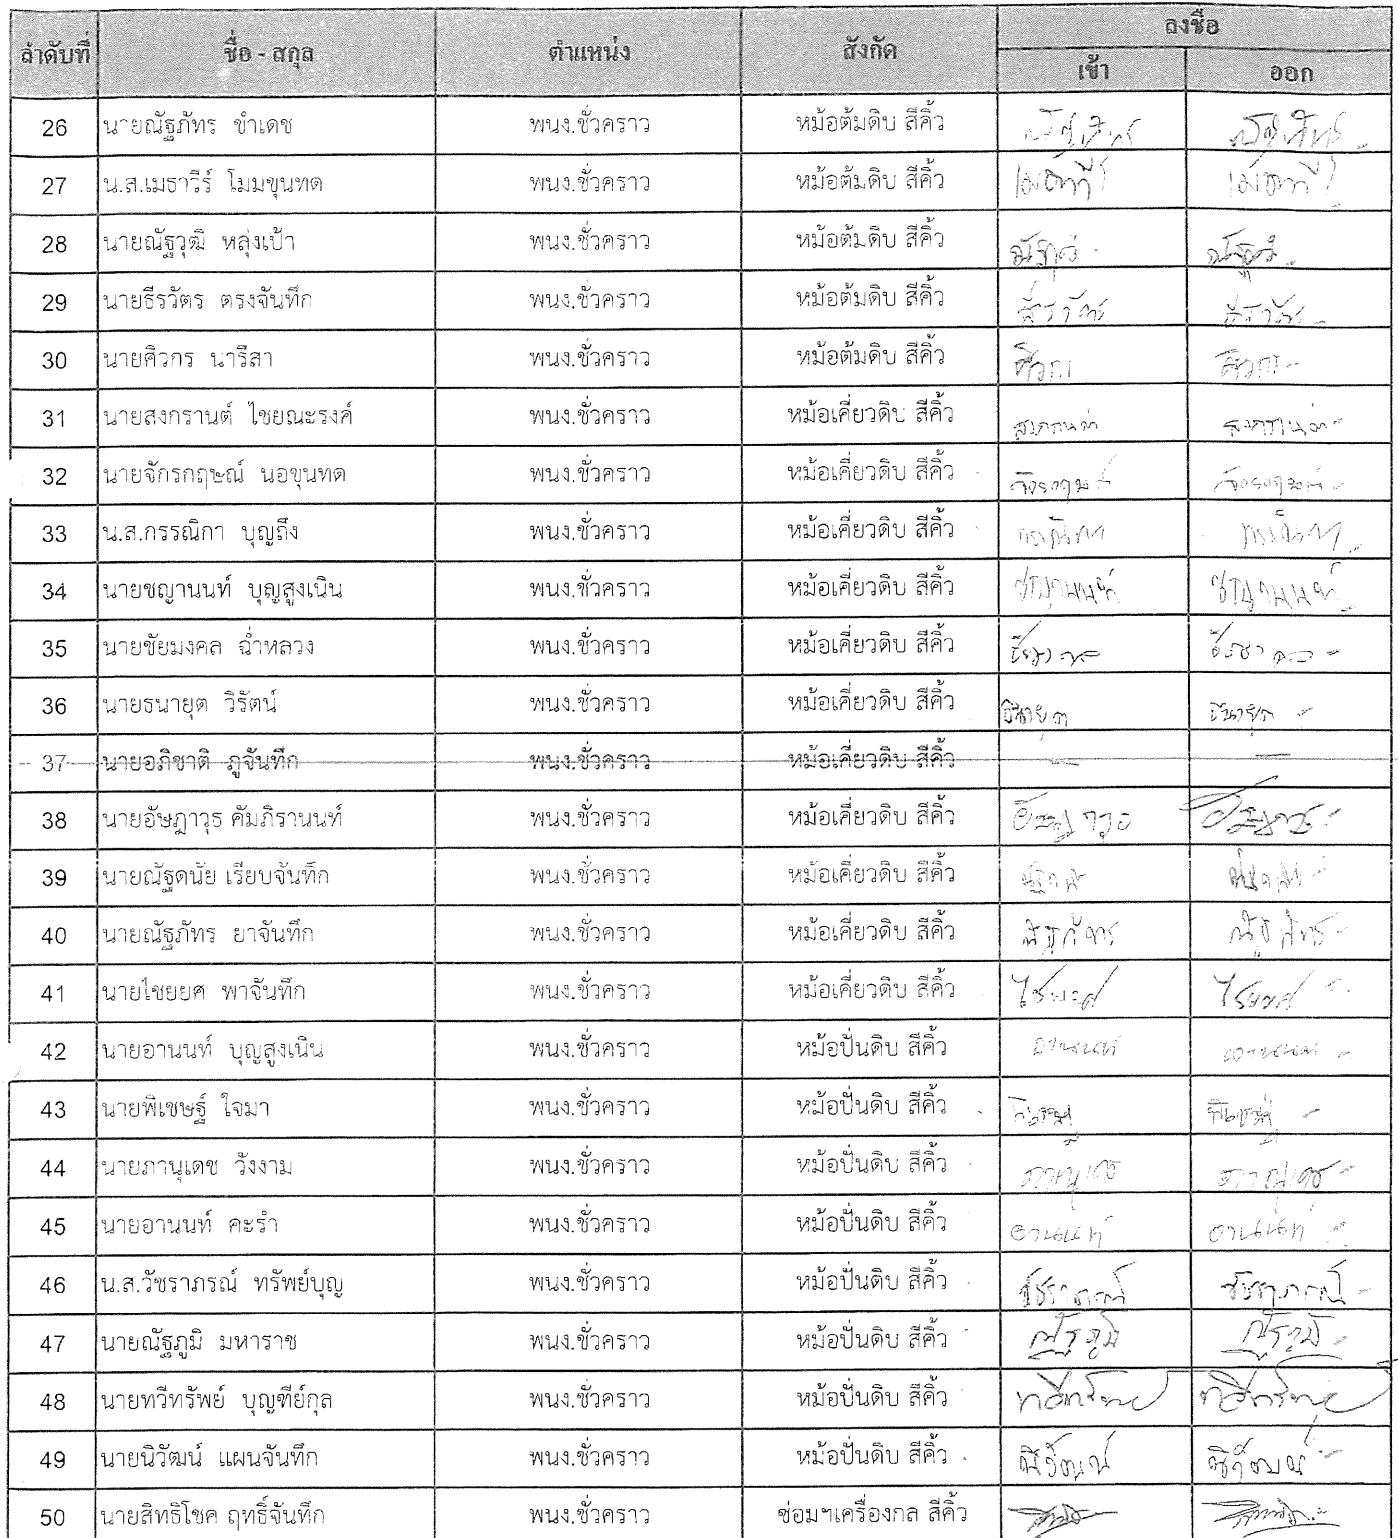 ลำดับที่ ชื่อ - สกุล ตำแหน่ง สังกัด ลงชื่อ
เข้า ออก
26 นายณัฐภัทร ขำเดช พนง.ชั่วคราว หม้อต้มดิบ สีคิ้ว ณัฐภัทร ณัฐภัทร
27 น.ส.เมธาวีร์ โมมขุนทด พนง.ชั่วคราว หม้อต้มดิบ สีคิ้ว
28 นายณัฐวุฒิ หลุ่งเป้า พนง.ชั่วคราว หม้อต้มดิบ สีคิ้ว
29 นายธีรวัตร ตรงจันทึก พนง.ชั่วคราว หม้อต้มดิบ สีคิ้ว
30 นายศิวกร นารีสา พนง.ชั่วคราว หม้อต้มดิบ สีคิ้ว ศิวกร ศิวกร
31 นายสงกรานต์ ไชยณะรงค์ พนง.ชั่วคราว หม้อเคี่ยวดิบ สีคิ้ว สงกรานต์ สงกรานต์
32 นายจักรกฤษณ์ นอขุนทด พนง.ชั่วคราว หม้อเคี่ยวดิบ สีคิ้ว
33 น.ส.กรรณิกา บุญถึง พนง.ชั่วคราว หม้อเคี่ยวดิบ สีคิ้ว กรรณิกา กรรณิกา
34 นายชญานนท์ บุญสูงเนิน พนง.ชั่วคราว หม้อเคี่ยวดิบ สีคิ้ว ชญานนท์ ชญานนท์
35 นายชัยมงคล ฉ่ำหลวง พนง.ชั่วคราว หม้อเคี่ยวดิบ สีคิ้ว
36 นายธนายุต วิรัตน์ พนง.ชั่วคราว หม้อเคี่ยวดิบ สีคิ้ว ธนายุต ธนายุต
37 นายอภิชาติ ภูจันทึก พนง.ชั่วคราว หม้อเคี่ยวดิบ สีคิ้ว
38 นายอัษฎาวุธ คัมภิรานนท์ พนง.ชั่วคราว หม้อเคี่ยวดิบ สีคิ้ว
39 นายณัฐดนัย เรียบจันทึก พนง.ชั่วคราว หม้อเคี่ยวดิบ สีคิ้ว
40 นายณัฐภัทร ยาจันทึก พนง.ชั่วคราว หม้อเคี่ยวดิบ สีคิ้ว ณัฐภัทร ณัฐภัทร
41 นายไชยยศ พาจันทึก พนง.ชั่วคราว หม้อเคี่ยวดิบ สีคิ้ว ไชยยศ ไชยยศ
42 นายอานนท์ บุญสูงเนิน พนง.ชั่วคราว หม้อปั่นดิบ สีคิ้ว อานนท์ อานนท์
43 นายพิเชษฐ์ ใจมา พนง.ชั่วคราว หม้อปั่นดิบ สีคิ้ว
44 นายภานุเดช วังงาม พนง.ชั่วคราว หม้อปั่นดิบ สีคิ้ว ภานุเดช ภานุเดช
45 นายอานนท์ คะรำ พนง.ชั่วคราว หม้อปั่นดิบ สีคิ้ว อานนท์ อานนท์
46 น.ส.วัชราภรณ์ ทรัพย์บุญ พนง.ชั่วคราว หม้อปั่นดิบ สีคิ้ว วัชราภรณ์ วัชราภรณ์
47 นายณัฐภูมิ มหาราช พนง.ชั่วคราว หม้อปั่นดิบ สีคิ้ว ณัฐภูมิ ณัฐภูมิ
48 นายทวีทรัพย์ บุญฑีย์กุล พนง.ชั่วคราว หม้อปั่นดิบ สีคิ้ว ทวีทรัพย์ ทวีทรัพย์
49 นายนิวัฒน์ แผนจันทึก พนง.ชั่วคราว หม้อปั่นดิบ สีคิ้ว นิวัฒน์ นิวัฒน์
50 นายสิทธิโชค ฤทธิ์จันทึก พนง.ชั่วคราว ซ่อมฯเครื่องกล สีคิ้ว